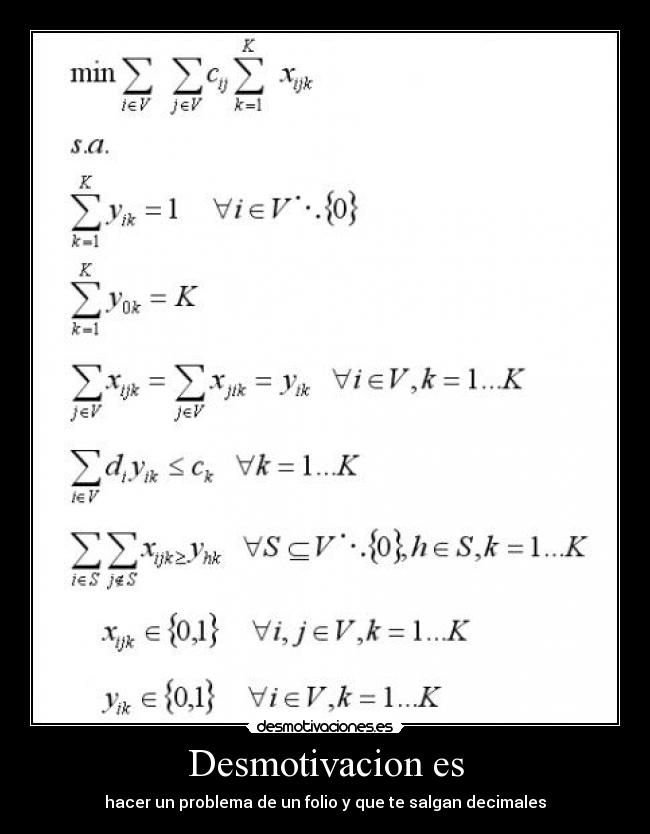 min ∑_{i∈V} ∑_{j∈V} c_{ij} ∑_{k=1}^{K} x_{ijk}
s.a.
∑_{k=1}^{K} y_{ik} = 1 ∀i∈V⋱{0}
∑_{k=1}^{K} y_{0k} = K
∑_{j∈V} x_{ijk} = ∑_{j∈V} x_{jik} = y_{ik} ∀i∈V, k = 1...K
∑_{i∈V} d_i y_{ik} ≤ c_k ∀k = 1...K
∑_{i∈S} ∑_{j∉S} x_{ijk} ≥ y_{hk} ∀S⊆V⋱{0}, h∈S, k = 1...K
x_{ijk} ∈ {0,1} ∀i, j∈V, k = 1...K
y_{ik} ∈ {0,1} ∀i∈V, k = 1...K
desmotivaciones.es
Desmotivacion es
hacer un problema de un folio y que te salgan decimales